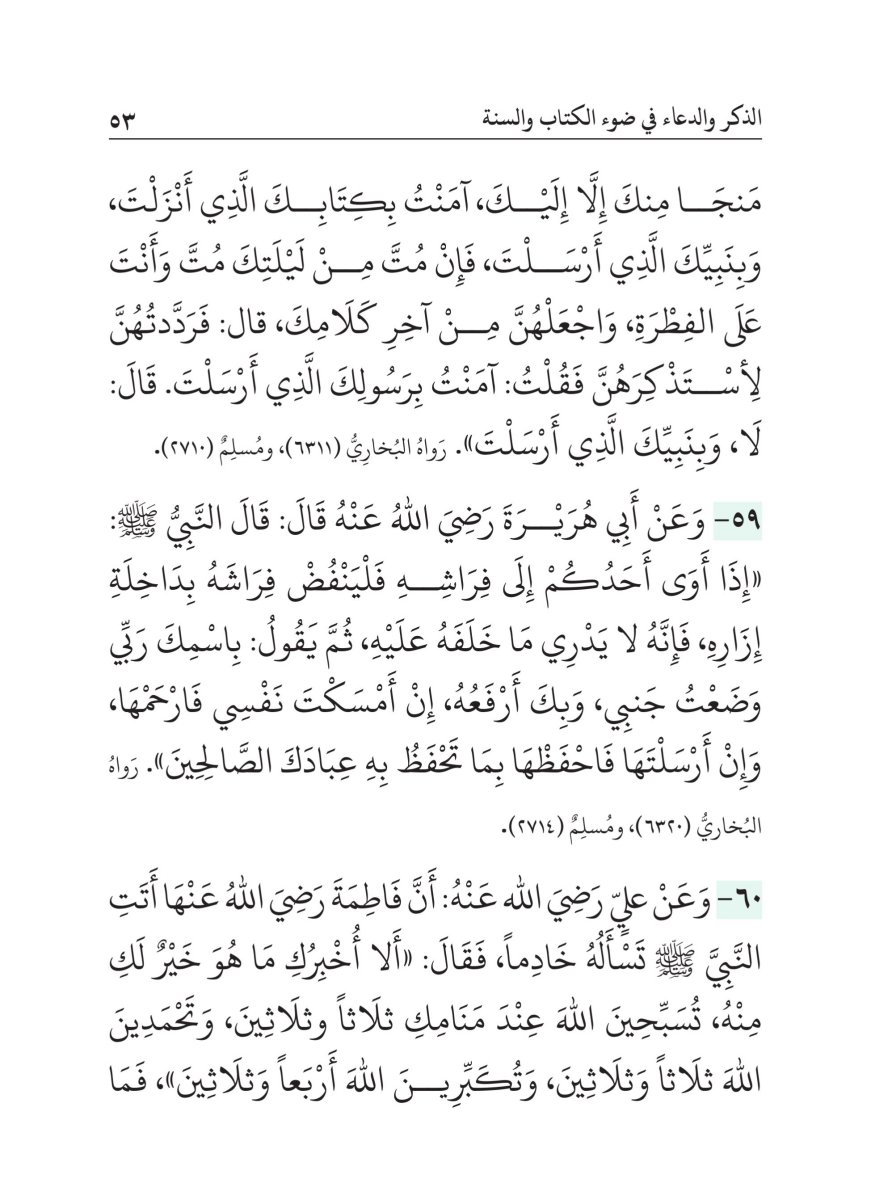 الذكر والدعاء في ضوء الكتاب والسنة ٥٣
مَنجَا مِنكَ إِلَّا إِلَيْكَ، آمَنْتُ بِكِتَابِكَ الَّذِي أَنْزَلْتَ،
وَبِنَبِيِّكَ الَّذِي أَرْسَلْتَ، فَإِنْ مُتَّ مِنْ لَيْلَتِكَ مُتَّ وَأَنْتَ
عَلَى الفِطْرَةِ، وَاجْعَلْهُنَّ مِنْ آخِرِ كَلَامِكَ، قال: فَرَدَّدتُهُنَّ
لِأسْتَذْكِرَهُنَّ فَقُلْتُ: آمَنْتُ بِرَسُولِكَ الَّذِي أَرْسَلْتَ. قَالَ:
لَا، وَبِنَبِيِّكَ الَّذِي أَرْسَلْتَ». رَواهُ البُخارِيُّ (٦٣١١)، ومُسلِمٌ (٢٧١٠).
٥٩- وَعَنْ أَبِي هُرَيْرَةَ رَضِيَ اللهُ عَنْهُ قَالَ: قَالَ النَّبِيُّ ﷺ:
«إِذَا أَوَى أَحَدُكُمْ إِلَى فِرَاشِهِ فَلْيَنْفُضْ فِرَاشَهُ بِدَاخِلَةِ
إِزَارِهِ، فَإِنَّهُ لا يَدْرِي مَا خَلَفَهُ عَلَيْهِ، ثُمَّ يَقُولُ: بِاسْمِكَ رَبِّي
وَضَعْتُ جَنبِي، وَبِكَ أَرْفَعُهُ، إِنْ أَمْسَكْتَ نَفْسِي فَارْحَمْهَا،
وَإِنْ أَرْسَلْتَهَا فَاحْفَظْهَا بِمَا تَحْفَظُ بِهِ عِبَادَكَ الصَّالِحِينَ». رَواهُ
البُخاريُّ (٦٣٢٠)، ومُسلِمٌ (٢٧١٤).
٦٠- وَعَنْ عليٍّ رَضِيَ الله عَنْهُ: أَنَّ فَاطِمَةَ رَضِيَ اللهُ عَنْهَا أَتَتِ
النَّبِيَّ ﷺ تَسْأَلُهُ خَادِماً، فَقَالَ: «أَلا أُخْبِرُكِ مَا هُوَ خَيْرٌ لَكِ
مِنْهُ، تُسَبِّحِينَ اللهَ عِنْدَ مَنَامِكِ ثلَاثاً وثلَاثِينَ، وَتَحْمَدِينَ
اللهَ ثلَاثاً وَثلَاثِينَ، وَتُكَبِّرِينَ اللهَ أَرْبَعاً وَثلَاثِينَ»، فَمَا